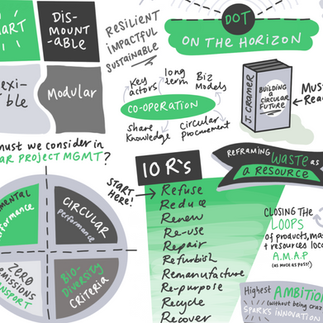 DIS-
MOUNT
-ABLE
Modular
RESILIENT
IMPACTFUL
SUSTAINABLE
DOT
ON THE HORIZON
Key
actors
long
term
Biz
Models
CO-OPERATION
Share
Knowledge
circular
procurement
J. CRAMER
BUILDING
A CIRCULAR
FUTURE
must we consider in
PROJECT MGMT?
10 R's
START
HERE!
Refuse
Reduce
Renew
Re-use
Repair
Refurbish
Remanufacture
Re-purpose
Recycle
Recover
REFRAMING WASTE as
A RESOURCE
CIRCULAR
performance
ZERO
BIO-
Diversity
CRITERIA
CLOSING THE
LOOPS
of products, mat
+ resources loc
A.M.A.P
(AS MUCH AS POSS)
Highest AMBITION
(without being craz
SPARKS INNOVATION